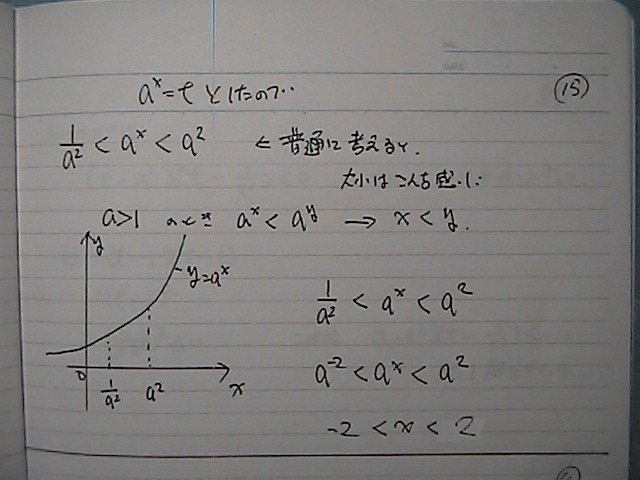 NO.
DATE
⑮
a^x=t としたので…
1/a² < a^x < a² ← 普通に考えると、
大小はこんな感じ
a>1 のとき a^x < a^y → x < y.
y
y=a^x
1/a² < a^x < a²
0 1/a² a² x
a^-2 < a^x < a²
-2 < x < 2